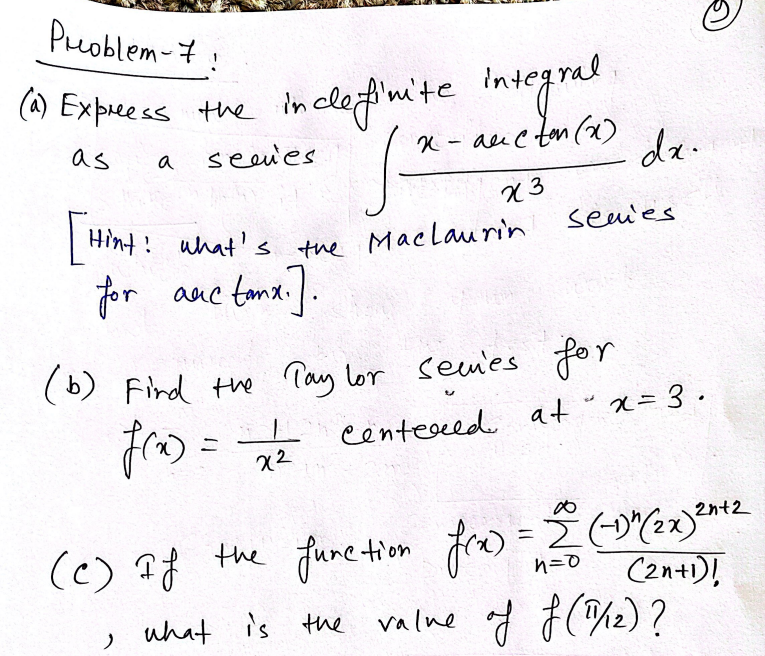 9
Problem-7:
(a) Express the indefinite integral
as a series ∫ (x - arctan(x))/x³ dx.
[Hint: what's the MacLaurin series
for arctanx.].
(b) Find the Taylor series for
f(x) = 1/x² centered at x=3.
(c) If the function f(x) = ∑_{n=0}^{∞} (-1)ⁿ(2x)^{2n+2}/(2n+1)!
, what is the value of f(π/12)?